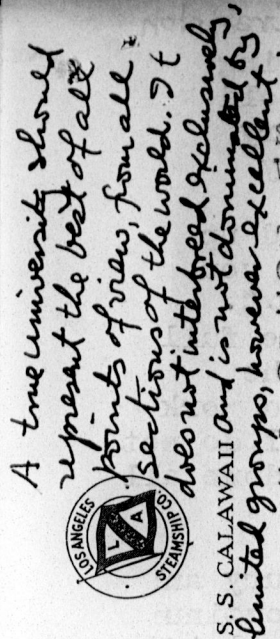 A true university should
represent the best of all
points of view, from all
sections of the world. It
does not interbreed exclusively,
and is not dominated by
limited groups, however excellent.
LOS ANGELES
STEAMSHIP CO.
L A
S. S. CALAWAII